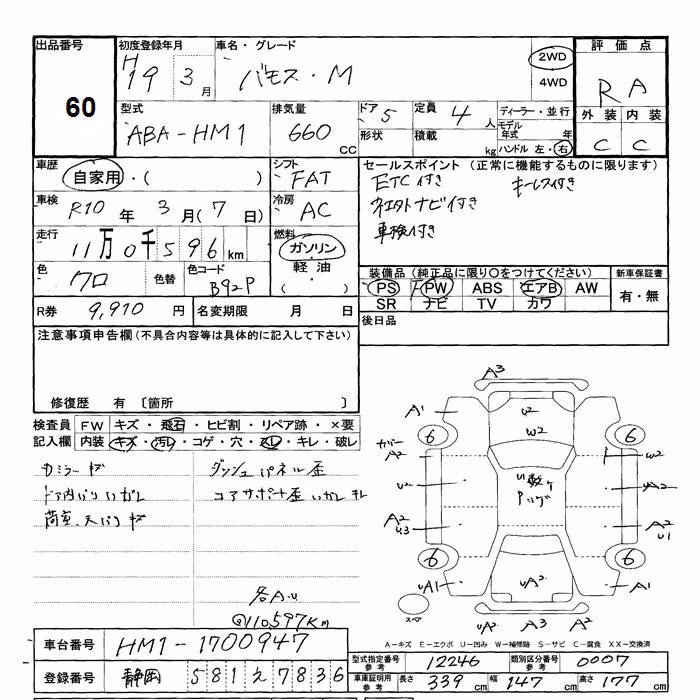 出品番号
60
初度登録年月
H 19 3 月
車名・グレード
バモス・M
2WD
4WD
評価点
RA
外装 内装
C C
型式
ABA-HM1
排気量
660 CC
ドア 5
形状
定員 4 人
積載 kg
ディーラー・並行
モデル年式 年
ハンドル 左・右
車歴
自家用・( )
シフト
FAT
車検
R10 年 3 月(7 日)
冷房
AC
走行
11万0千596 km
燃料
ガソリン
軽油
( )
色
クロ
色替
色コード
B92P
セールスポイント(正常に機能するものに限ります)
ETC付き キーレス付き
ナビ付き
車検付き
装備品(純正品に限り○をつけてください)
PS PW ABS エアB AW
SR ナビ TV カワ
新車保証書
有・無
R券 9,910 円
名変期限 月 日
後日品
注意事項申告欄(不具合内容等は具体的に記入して下さい)
修復歴 有 〔箇所 〕
検査員記入欄
FW キズ・飛石・ヒビ割・リペア跡・×要
内装 キズ・汚レ・コゲ・穴・スレ・キレ・破レ
ダッシュパネル歪
コアサポート歪
各A.U
@110,597Km
A3
A1
6
カバー
A2
U2
A2
U3
6
UA1
U2
W2
UA2
6
W2
A2
A2
U1
6
A1
スペア
UA2 A3 A2
A-キズ E-エクボ U-凹み W-補修跡 S-サビ C-腐食 XX-交換済
車台番号 HM1-1700947
登録番号 静岡 581 え 7836
型式指定番号 参考 12246
類別区分番号 参考 0007
車庫証明用 参考 長さ 339 cm 幅 147 cm 高さ 177 cm